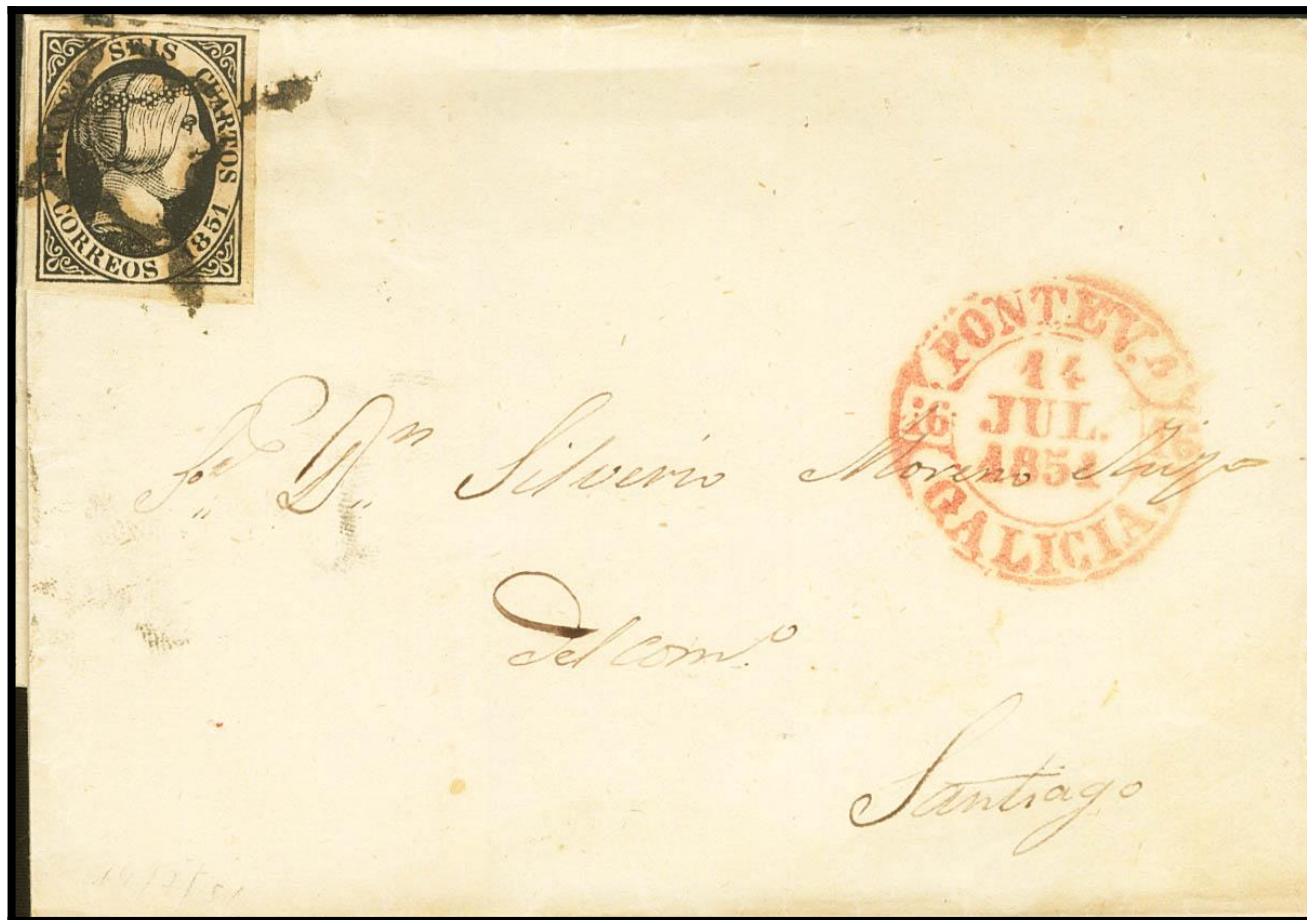 FRANCO SEIS CUARTOS
CORREOS 1851
PONTEV.A
14
JUL.
1851
16 16
GALICIA.
Sr. Dn. Silverio Moreno
Del como.
Santiago
14/7/51